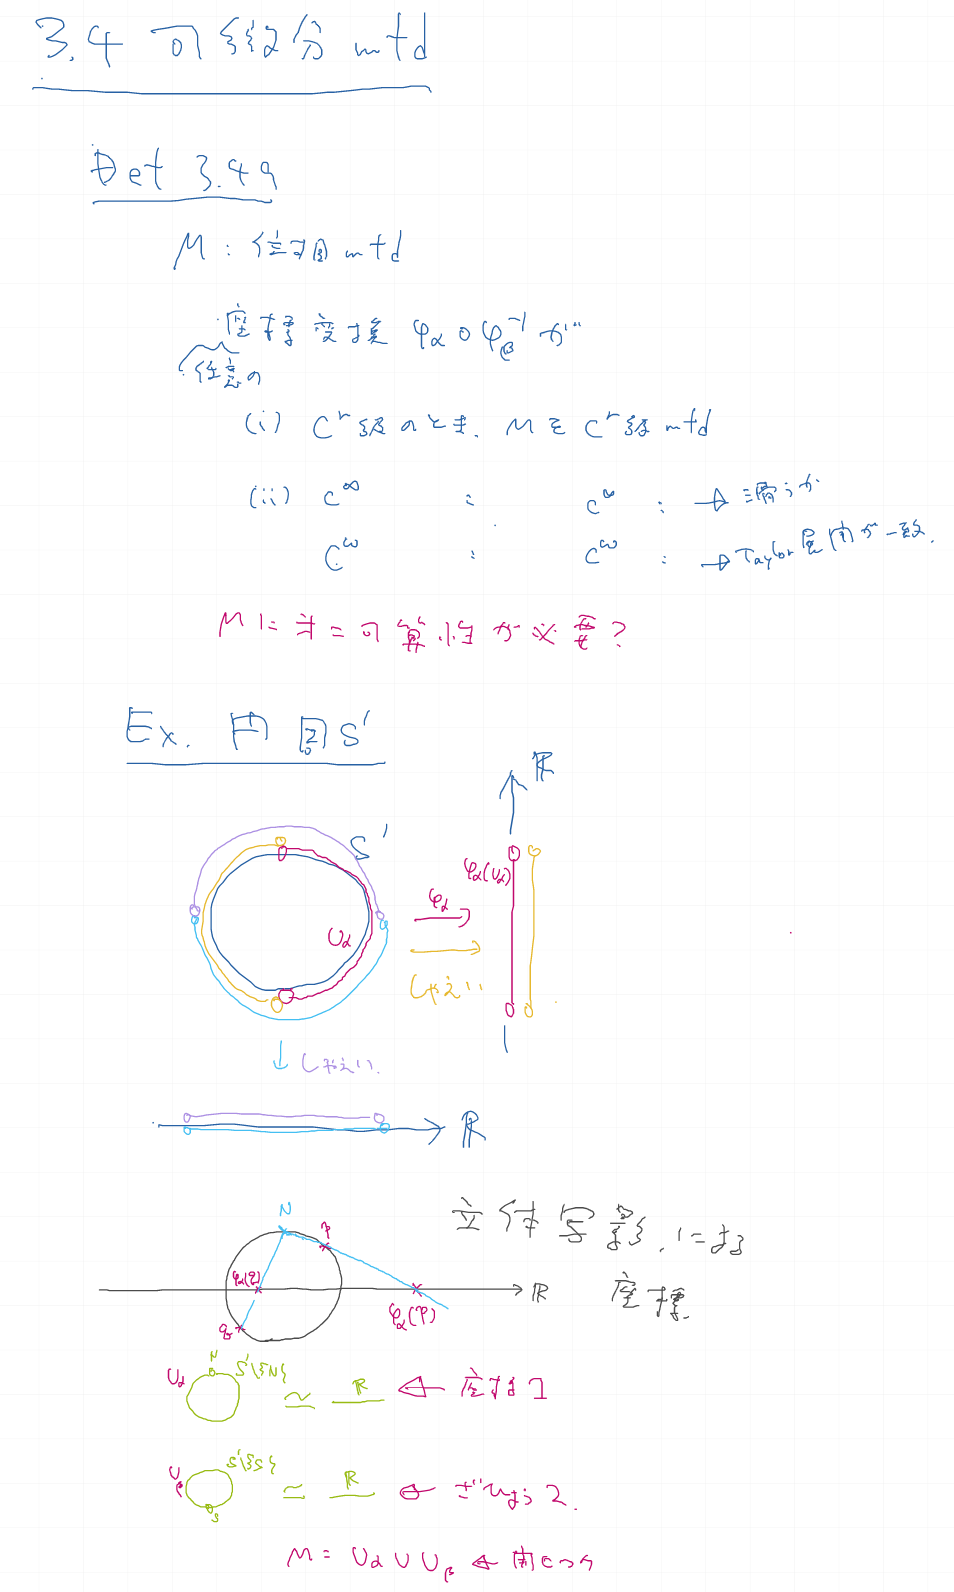 3.4 可微分 mfd
Def 3.49
M : 位相 mfd
座標変換 φα ∘ φβ⁻¹ が
任意の
(i) C^r 級のとき、M を C^r 級 mfd
(ii) C^∞ : C^∞ : → 滑らか
C^ω : C^ω : → Taylor展開が一致.
M に 第二可算性が必要?
Ex. 円周 S¹
R
S¹
φα(Uα)
φα
Uα
しゃえい
しゃえい.
R
立体写影による
座標
N
P
φα(q)
R
φα(P)
q
Uα
N
S¹\{N}
≃ R ← 座標1
Uβ
S¹\{S}
≃ R ← ざひょう2.
S
M = Uα ∪ Uβ ← 開2つ